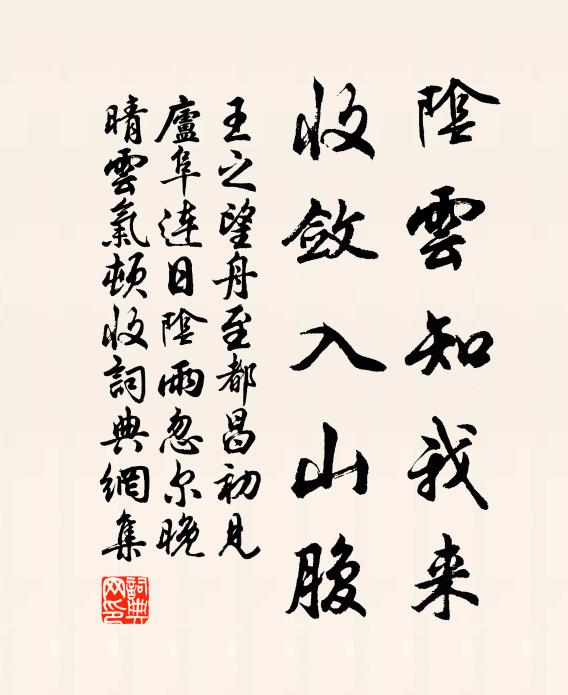 陰雲知我来
收斂入山腹
王之望舟至都昌初見
廬阜連日陰雨忽尔晚
晴雲氣頓收詞典網集
詞典網印